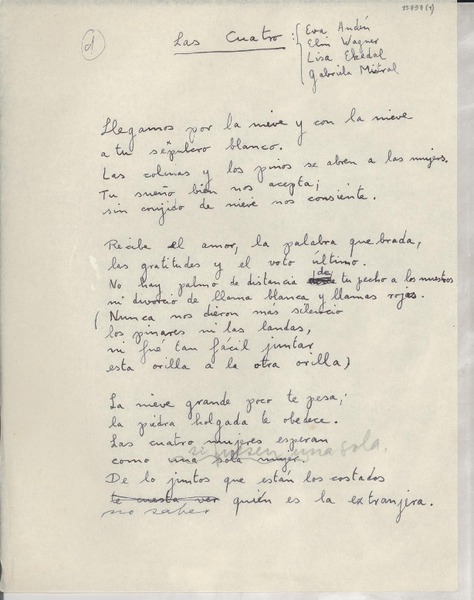 d
Las Cuatro: { Eva Andén
Elin Wagner
Lisa Ekedal
Gabriela Mistral
Llegamos por la nieve y con la nieve
a tu sepulcro blanco.
Las colinas y los pinos se abren a las mujeres.
Tu sueño bien nos acepta;
sin crujido de nieve nos consiente.
Recibe el amor, la palabra quebrada,
las gratitudes y el voto último.
No hay palmo de distancia de tu pecho a los nuestros
ni divorcio de llama blanca y llamas rojas.
(Nunca nos dieron más silencio
los pinares ni las landas,
ni fué tan fácil juntar
esta orilla a la otra orilla)
La nieve grande poco te pesa;
la piedra holgada te obedece.
Las cuatro mujeres esperan
como una sola mujer. si fuesen una sola.
De lo juntos que están los costados
te cuesta ver quién es la extranjera.
no saber